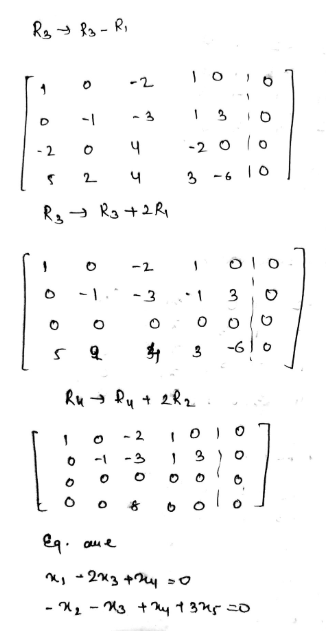 R3 → R3 - R1
1 0 -2 1 0 | 0
0 -1 -3 1 3 | 0
-2 0 4 -2 0 | 0
5 2 4 3 -6 | 0
R3 → R3 + 2R1
1 0 -2 1 0 | 0
0 -1 -3 1 3 | 0
0 0 0 0 0 | 0
5 2 4 3 -6 | 0
R4 → R4 + 2R2
1 0 -2 1 0 | 0
0 -1 -3 1 3 | 0
0 0 0 0 0 | 0
0 0 8 0 0 | 0
Eq. are
x1 - 2x3 + x4 = 0
- x2 - x3 + x4 + 3x5 = 0